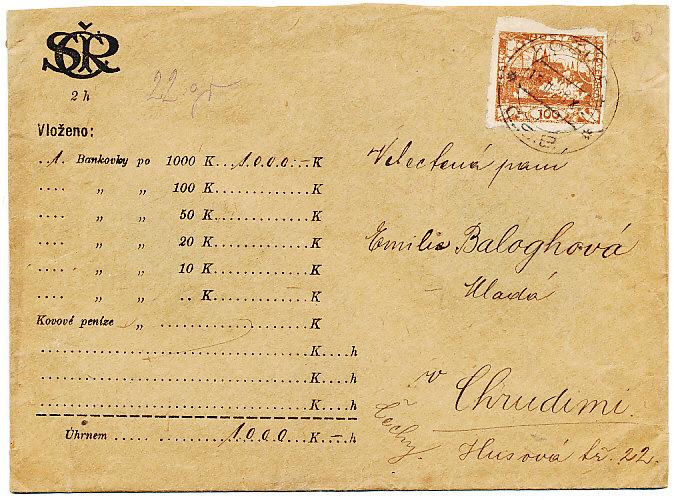 SČR
2 h
22 gr
Vloženo:
..1. Bankovky po 1000 K...1000.–K
.... „ „ 100 K...............K
.... „ „ 50 K...............K
.... „ „ 20 K...............K
.... „ „ 10 K...............K
.... „ „ .. K...............K
Kovové peníze „ ......................K
..........................................K....h
..........................................K....h
..........................................K....h
Úhrnem ..... ........1000...K.–.h
100
Velectěná paní
Emilie Baloghová
Mladá
v Chrudimi.
Čechy.
Husová tř. 22.